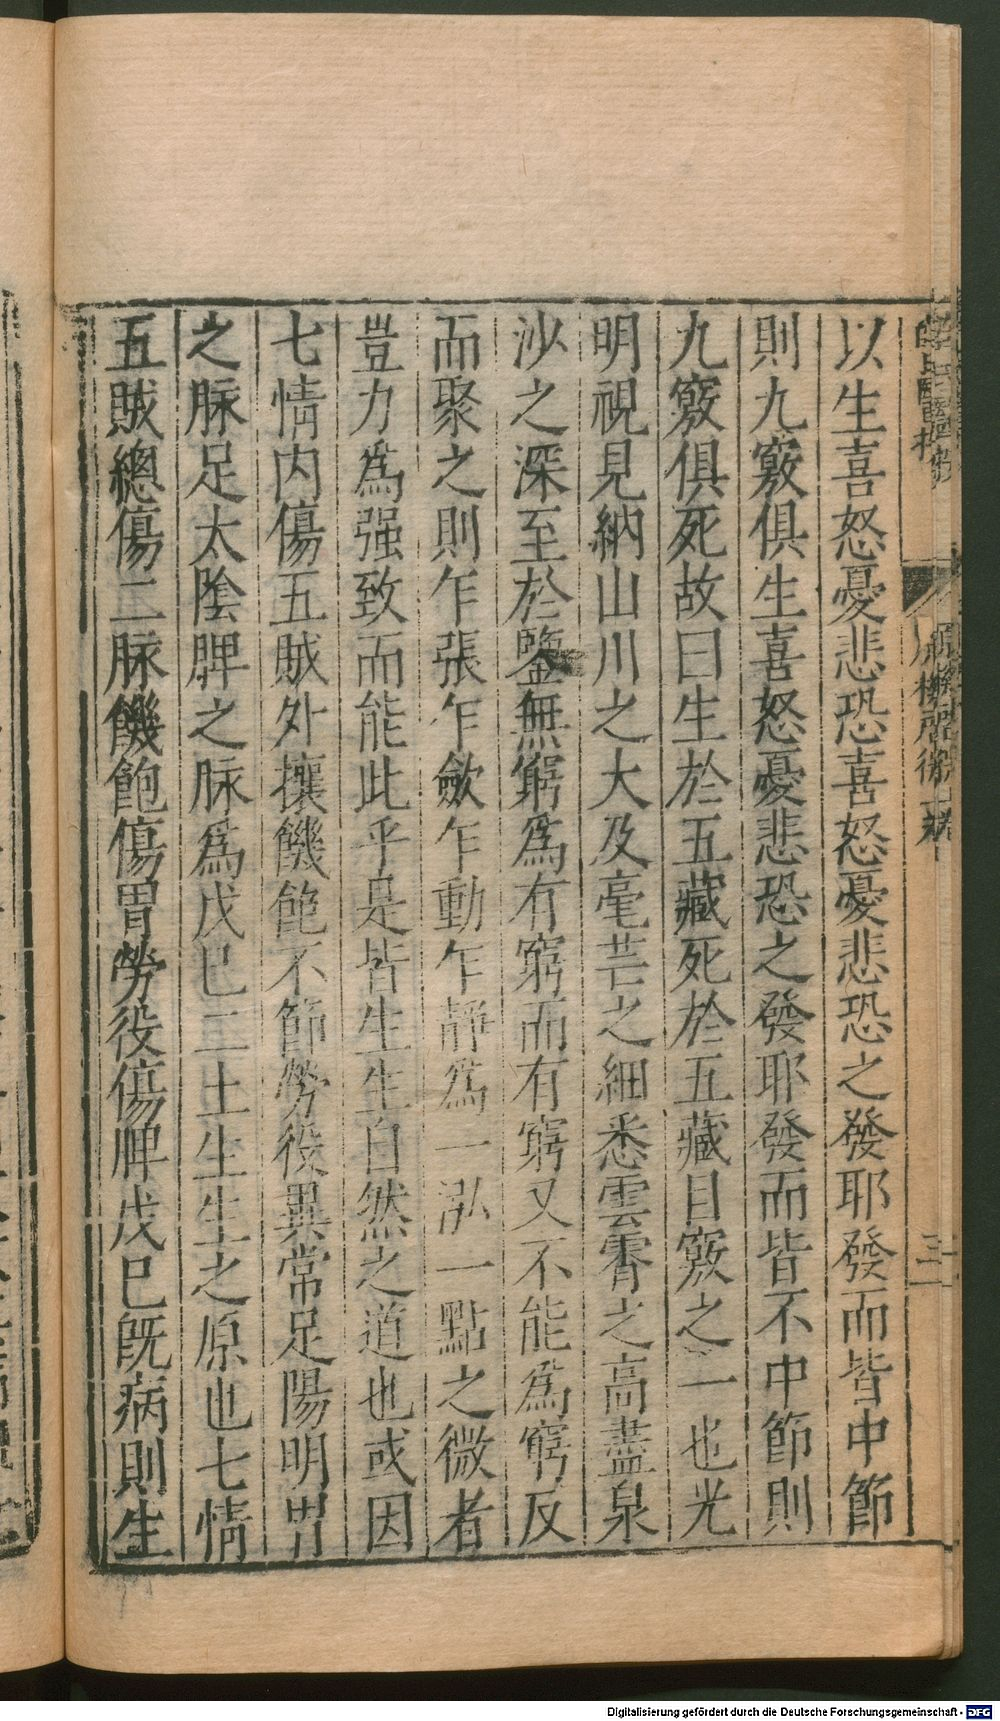 以生喜怒憂悲恐喜怒憂悲恐之發耶發而皆中節
則九竅俱生喜怒憂悲恐之發耶發而皆不中節則
九竅俱死故曰生於五藏死於五藏目竅之一也光
明視見納山川之大及毫芒之細悉雲霄之高盡泉
沙之深至於鑒無窮為有窮而有窮又不能為窮反
而聚之則乍張乍歛乍動乍靜為一泓一點之微者
豈力為强致而能此乎是皆生生自然之道也或因
七情内傷五賊外攘饑飽不節勞役異常足陽明胃
之脉足太陰脾之脉為戊巳二土生生之原也七情
五賊總傷二脉饑飽傷胃勞役傷脾戊巳既病則生
三
Digitalisierung gefördert durch die Deutsche Forschungsgemeinschaft - DFG